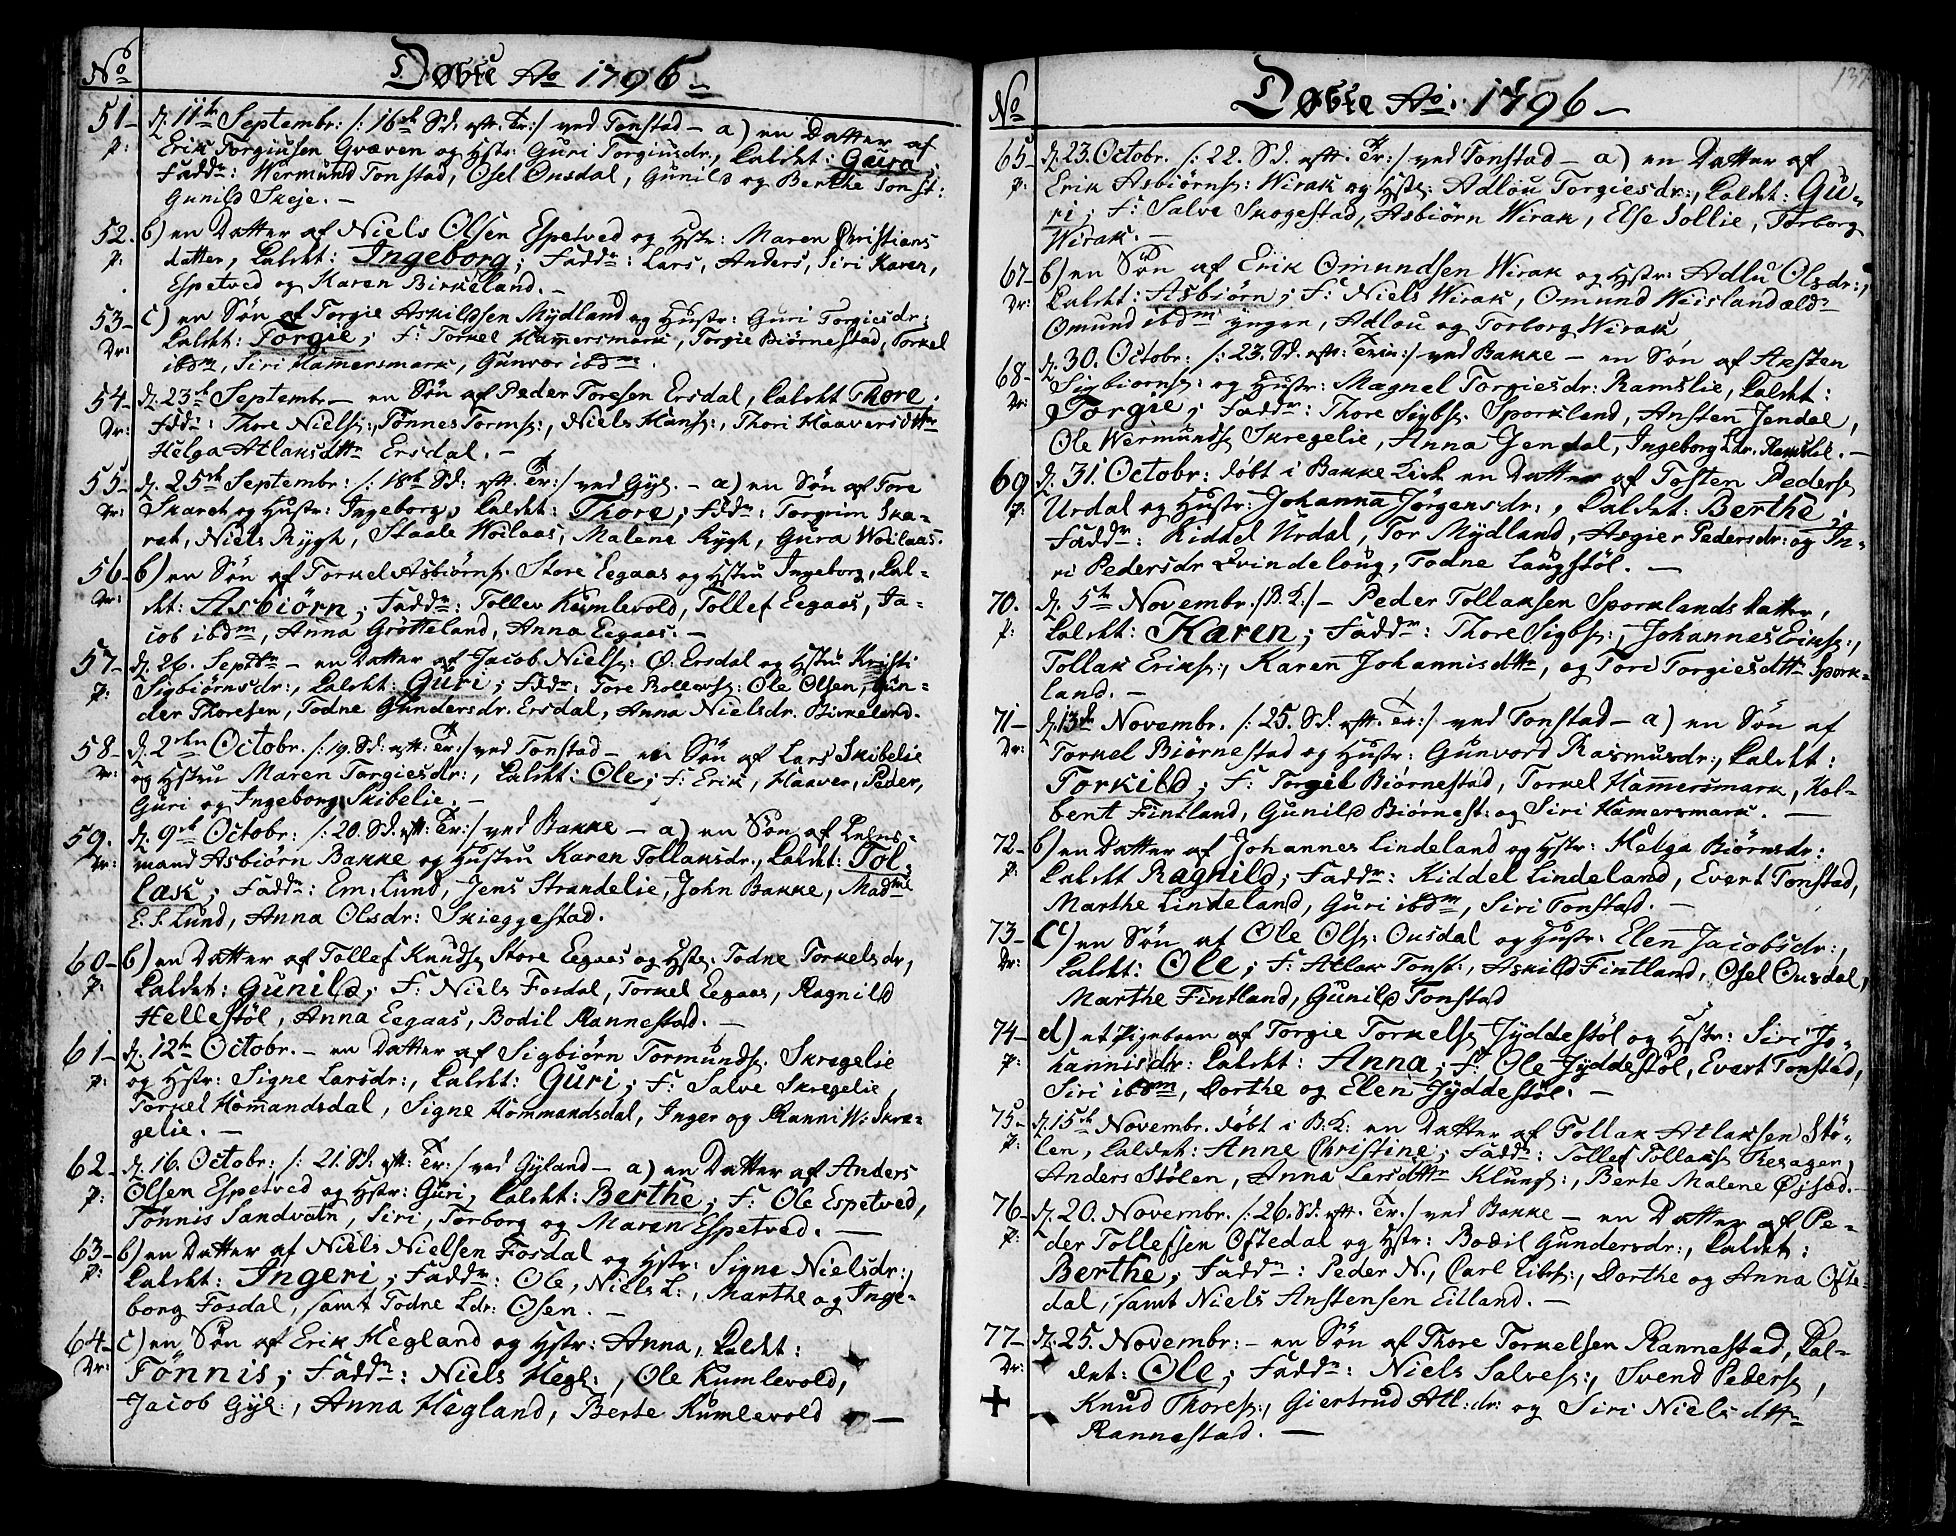 No
Døbte Ao 1796
51 d. 11te Septembr: /: 16de Sd: eft: Tr:/ ved Tonstad – a) en Datter af
p: Erik Torgiusen Qvæven og Hstr: Guri Torgiusdr., kaldet: Gura;
Fadd:r Wermund Tonstad, Osel Ousdal, Gunild og Berthe Tonst:
Gunild Skeje. –
52. b) en Datter af Niels Olsen Espetved og Hstr: Maren Christians
p: datter, kaldet: Ingeborg; Fadd:r Lars, Anders, Siri Karen,
Espetved og Karen Birkeland. –
53 – c) en Søn af Torgie Askildsen Mydland og Hustr: Guri Torgiesdr:
Dr: kaldet: Torgie; F: Torkel Hamersmark, Torgie Biørnestad, Torkel
ibdm, Siri Hamersmark, Gunvor ibdm.
54 – d. 23de Septembr – en Søn af Peder Toresen Ersdal, kaldet Thore.
Dr: Fdd:r Thore Nielss:, Tønnes Torms:, Niels Hans:, Thori Haaversdttr
Helga Atlaksdttr Ersdal. –
55 – d. 25de Septembr: /: 18de Sd: eft: Tr:/ ved Gyl. – a) en Søn af Tore
Dr: Skaret og Hustr: Ingeborg, kaldet: Thore; Fdd:r Torgrim Ska-
ret, Niels Rygh, Staale Woilaas, Malena Rygh, Gura Woilaas.
56 – b) en Søn af Torkel Asbiørns: Store Eegaas og Hstru Ingeborg, kal-
Dr: det: Asbiørn; Fadd:r Tollev Kumlevold, Tollef Eegaas, Ja-
cob ibdm, Anna Grøtteland, Anna Eegaas. –
57 – d. 26. Septbr – en Datter af Jacob Niels: Ø. Ersdal og Hstru Kristi
p: Sigbiørnsdr:, kaldet: Guri; Fdd:r Tore Rollevs: Ole Olsen, Gun-
der Thoresen, Todne Gundersdr. Ersdal, Anna Nielsdr. Birkeland.
58 – d. 2den Octobr. /: 19. Sd: eft: Tr:/ ved Tonstad – en Søn af Lars Skibelie
Dr: og Hstru Maren Torgiesdr:, kaldet: Ole; F: Erik, Haaver, Peder,
Guri og Ingeborg Skibelie. –
59. d. 9de Octobr: /: 20. Sd: eft: Tr:/ ved Bakke – a) en Søn af Lens-
Dr: mand Asbiørn Bakke og Hustru Karen Tollaksdr., kaldet: Tol-
lak; Fadd:r Em: Lund, Jens Strandelie, John Bakke, Madme
E. S. Lund, Anna Olsdr: Skieggestad.
60 – b) en Datter af Tollef Knuds: Store Eegaas og Hstr: Todne Torkelsdr,
p: kaldet: Gunild; F: Niels Fosdal, Torkel Eegaas, Ragnild
Hellestøl, Anna Eegaas, Bodil Rannestad. –
61 – d. 12te Octobr. – en Datter af Sigbiørn Tormunds: Skregelie
p: og Hstr: Signe Larsdr:, kaldet: Guri; F: Salve Skregelie,
Torkel Homandsdal, Signe Hommandsdal, Inger og Ranni W: Skre-
gelie. –
62 – d. 16. Octobr: /: 21. Sd: eft: Tr:/ ved Gyland – a) en Datter af Anders
p: Olsen Espetved og Hstr: Guri, kaldet: Berthe; F: Ole Espetved,
Tønnis Sandvatn, Siri, Torborg og Maren Espetved. –
63 – b) en Datter af Niels Nielsen Fosdal og Hstr: Signe Nielsdr:,
p: kaldet: Ingeri; Fadd:r Ole, Niels L:, Marthe og Inge-
borg Fosdal, samt Todne Ldr: Osen. –
64 – c) en Søn af Erik Hegland og Hstr: Anna, kaldet:
Dr: Tønnis; Fadd:r Niels Hegl:, Ole Kumlevold,
Jacob Gyl:, Anna Hegland, Berte Kumlevold –
137
No
Døbte Ao: 1796 –
65 – d. 23. Octobr. /: 22. Sd. eft. Tr:/ ved Tonstad – a) en Datter af
p: Erik Asbiørns: Wirak og Hstr: Adlou Torgiesdr:, kaldet: Gu-
ri; F: Salve Skogestad, Asbiørn Wirak, Else Sollie, Torborg
Wirak. –
67 – b) en Søn af Erik Omundsen Wirak og Hstr: Adlu Olsdr:,
Dr: kaldet: Asbiørn; F: Niels Wirak, Omund Weisland ældr
Omund ibdm yngere, Adlou og Torborg Wirak
68 – d. 30. Octobr: /: 23. Sd. eft: Trin:/ ved Bakke – en Søn af Ansten
Dr: Sigbiørns: og Hustr: Magnel Torgiesdr: Ramslie, kaldet:
Torgie; Fadd:r Thore Sigbs: Sporkland, Ansten Jendal,
Ole Wermunds: Skregelie, Anna Jendal, Ingeborg Ldr. Ramslie. –
69 d. 31. Octobr: døbt i Bakke Kirk en Datter af Tosten Peders:
p: Urdal og Hustr: Johanna Jørgensdr:, kaldet: Berthe;
Fadd:r Kiddel Urdal, Tor Mydland, Asgier Pedersdr: og In-
ri Pedersdr Qvindeloug, Todne Laugstøl. –
70. d. 5te Novembr. /B. K./ – Peder Tollaksen Sporklands datter,
p: kaldet: Karen; Fadd:r Thore Sigbs:, Johannes Eriks:,
Tollak Eriks:, Karen Johannisdttr, og Tori Torgiesdttr Spork-
land. –
71 – d. 13de Novembr. /: 25. Sd. eft. Tr:/ ved Tonstad – a) en Søn af
Dr: Torkel Biørnestad og Hustr: Gunvord Rasmusdr:, kaldet:
Torkild; F: Torgiel Biørnestad, Torkel Hamersmark, Kol-
bent Fintland, Gunild Biørnest: og Siri Hamersmark. –
72 – b) en Datter af Johannes Lindeland og Hstr: Helga Biørnsdr:
p: kaldet Ragnild; Fadd:r Kiddel Lindeland, Evert Tonstad,
Marthe Lindeland, Guri ibdm, Siri Tonstad. –
73 – c) en Søn af Ole Ols: Ousdal og Hustr: Elen Jacobsdr:,
Dr: kaldet: Ole; F: Atlak Tonst:, Askild Fintland, Osel Ousdal,
Marthe Fintland, Gunild Tonstad
74 – d) et Pigebarn af Torgie Torkels: Jyddestøl og Hstr: Siri Jo-
p: hannisdr: kaldet: Anna; F: Ole Jyddestøl, Evert Tonstad,
Siri ibdm, Dorthe og Elen Jyddestøl. –
75 – d. 15de Novembr. døbt i B. K: en Datter af Tollak Atlaksen Stø-
p: len, kaldet: Anne Christine; Fadd:r Tollef Tollaks:
Anders Stølen, Anna Larsdttr Klungl:, Berte Malene Øysæd. –
76 – d. 20. Novembr. /: 26. Sd. eft. Tr:/ ved Bakke – en Datter af Pe-
p: der Tollefsen Oftedal og Hstr: Bodil Gundersdr:, kaldet:
Berthe; Fadd:r Peder N., Carl Eibs:, Dorthe og Anna Ofte-
dal, samt Niels Anstensen Eilland. –
77 – d. 25. Novembr: – en Søn af Thore Torkelsen Rannestad, kal-
Dr: det: Ole; Fadd:r Niels Salves:, Svend Peders:,
Knud Thores:, Giertrud Atl:dr: og Siri Nielsdttr
Rannestad. –